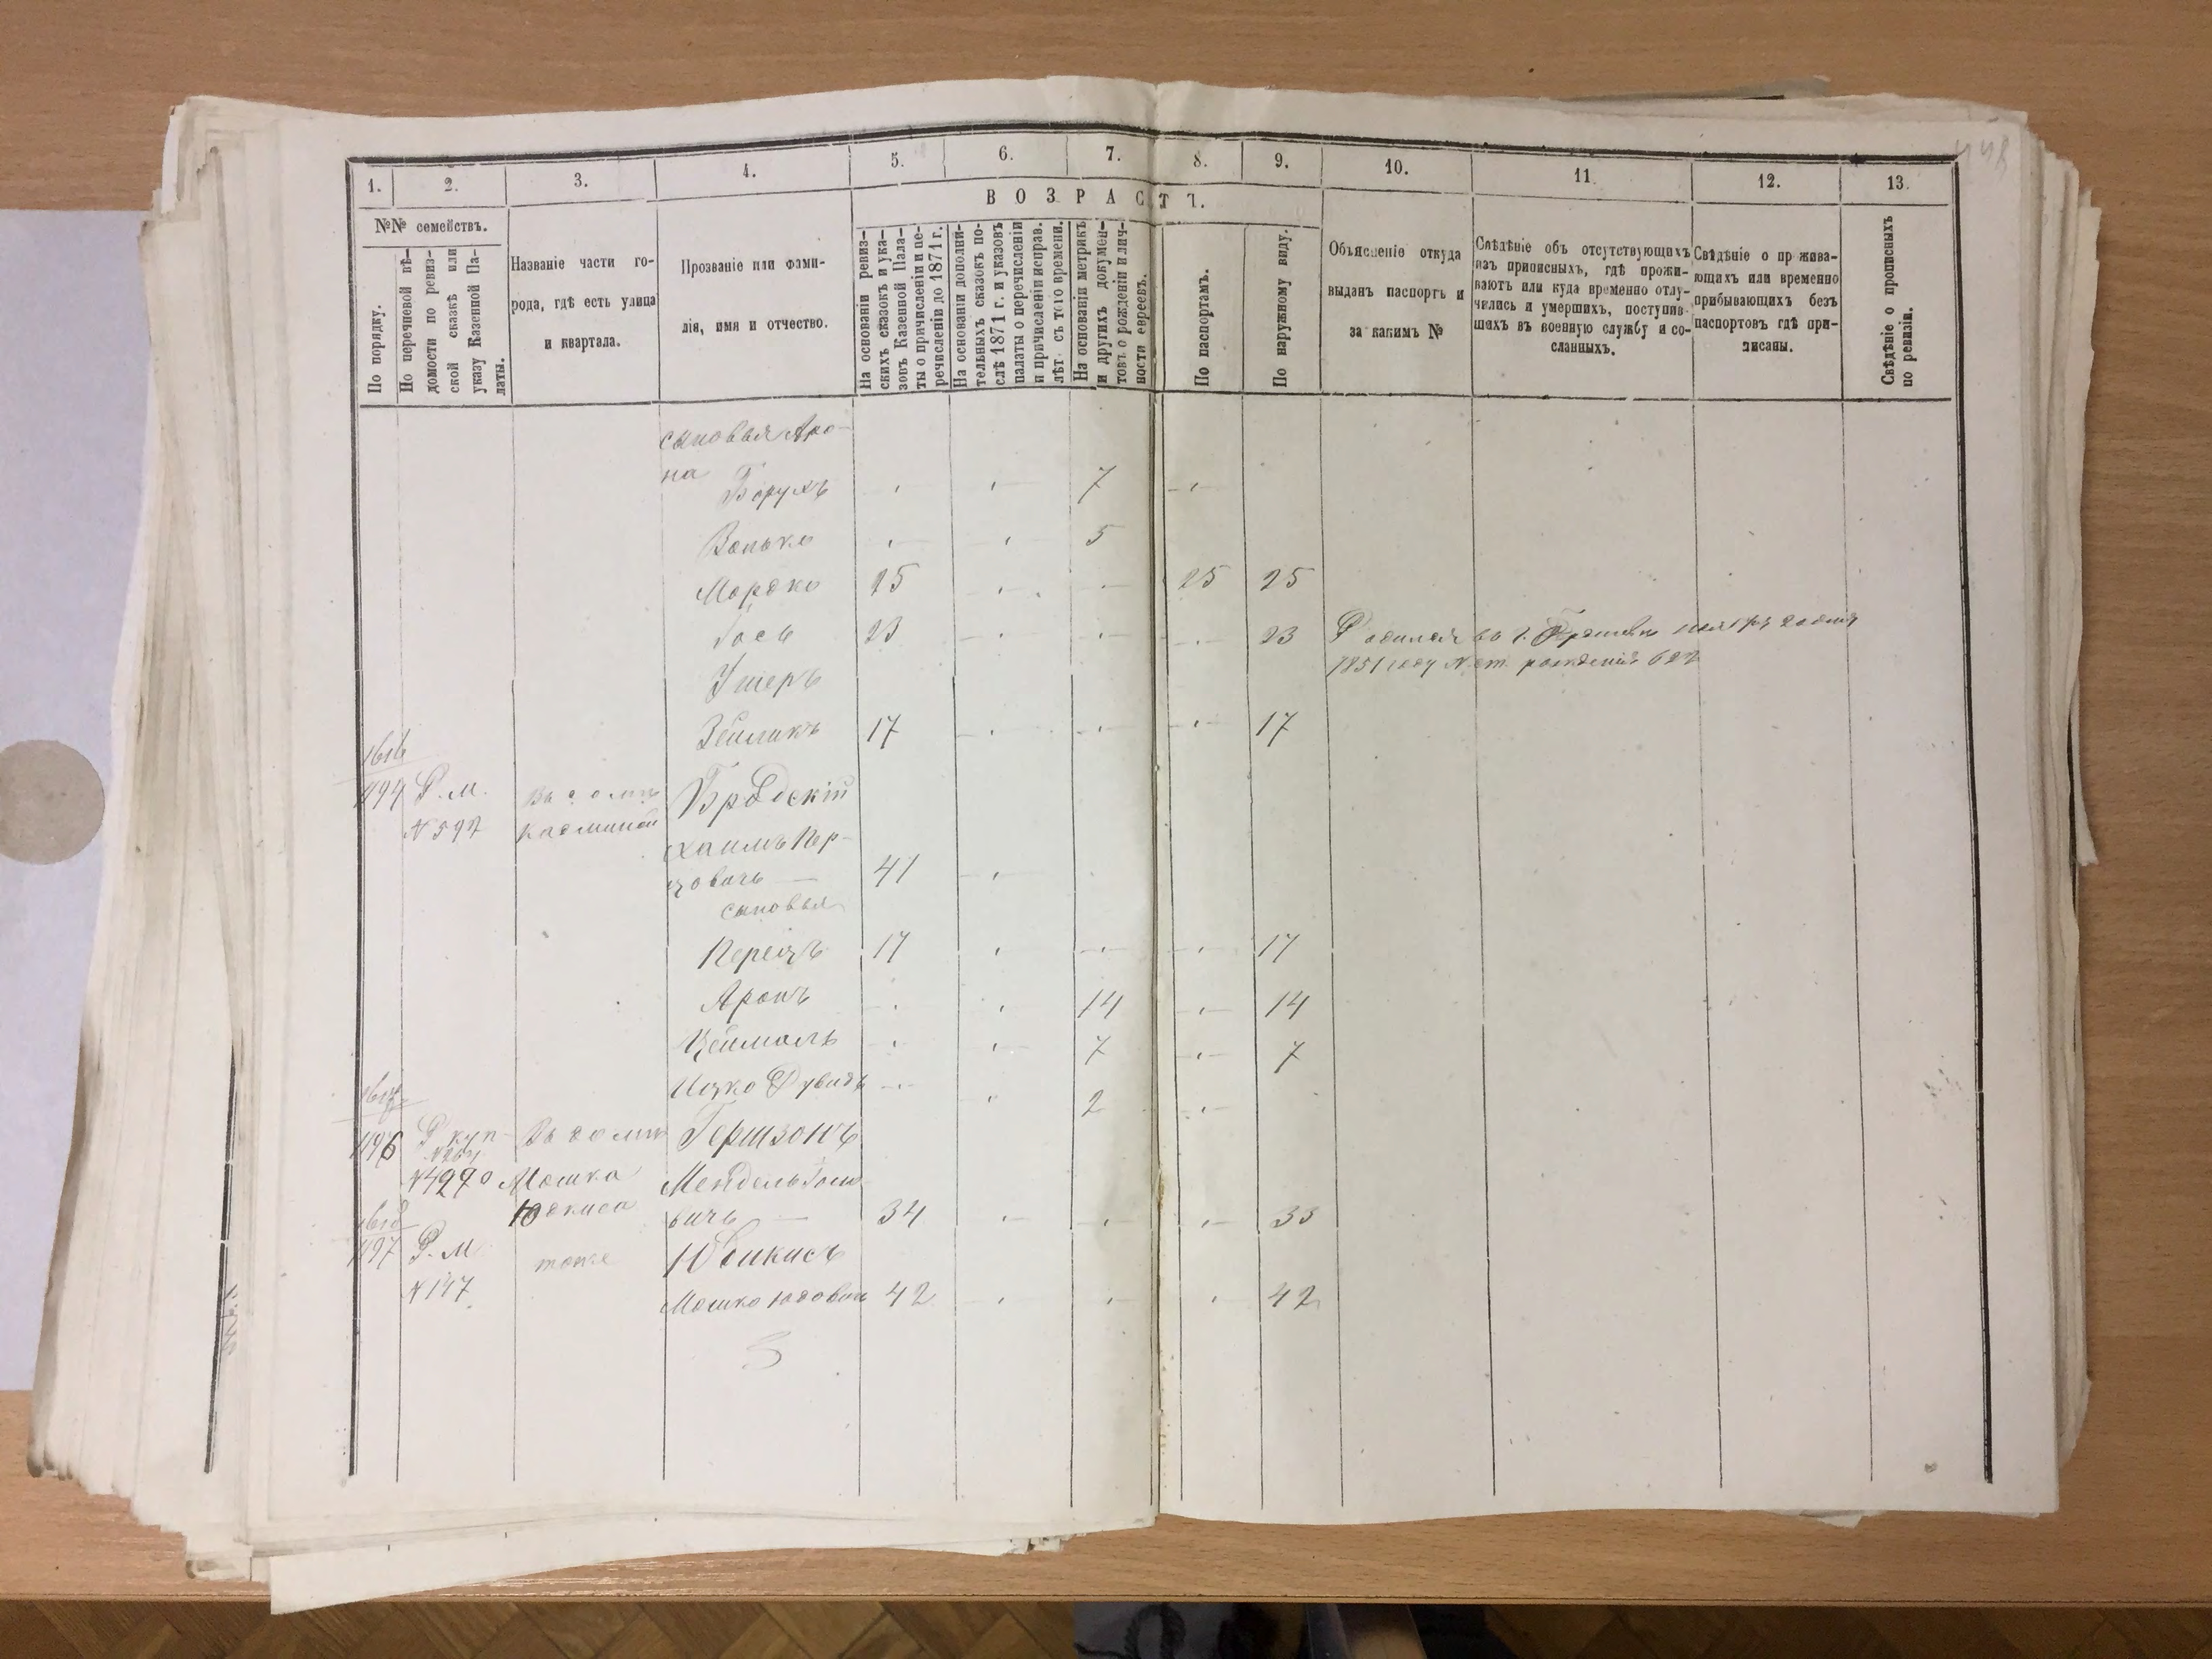 1. 2. 3. 4. 5. 6. 7. 8. 9. 10. 11. 12. 13.
ВОЗРАСТЪ.
№№ семействъ.
По порядку.
По перечневой вѣ-
домости по ревиз-
ской сказкѣ или
указу Казенной Па-
латы.
Названіе части го-
рода, гдѣ есть улица
и квартала.
Прозваніе или фами-
лія, имя и отчество.
На основаніи ревиз-
скихъ сказокъ и ука-
зовъ Казенной Пала-
ты о причисленіи и пе-
речисленіи до 1871 г.
На основаніи дополни-
тельныхъ сказокъ по-
слѣ 1871 г. и указовъ
палаты о перечисленіи
и причисленіи исправ.
лѣт съ того времени.
На основаніи метрикъ
и другихъ докумен-
товъ о рожденіи и лич-
ности евреевъ.
По паспортамъ.
По наружному виду.
Объясненіе откуда
выданъ паспортъ и
за какимъ №
Свѣдѣніе объ отсутствующихъ
изъ приписныхъ, гдѣ прожи-
ваютъ или куда временно отлу-
чились и умершихъ, поступив-
шихъ въ военную службу и со-
сланныхъ.
Свѣдѣніе о прожива-
ющихъ или временно
прибывающихъ безъ
паспортовъ гдѣ при-
писаны.
Свѣдѣніе о прописныхъ
по ревизіи.
448
сыновья Аро-
на
Борухъ 7
Волько 5
Мордко 25 25 25
Гось 23 23 Родился въ г.
1851 году № рожденія 622
Ушеръ
Зейликъ 17 17
1616
1194 Р. м. Въ домѣ Бродскій
№ 597
Хаимъ Пер-
цовичъ 41
сыновья
Перецъ 17 17
Аронъ 14 14
Кейманъ 7 7
Ицко Дувидъ 2
1617
1196 Р куп Въ домѣ Гершзонъ
№ 4290 Мошка Мендель
вичъ 34 33
1618
1197 Р. м тоже
№ 147 Мошко Юдовичъ 42 42